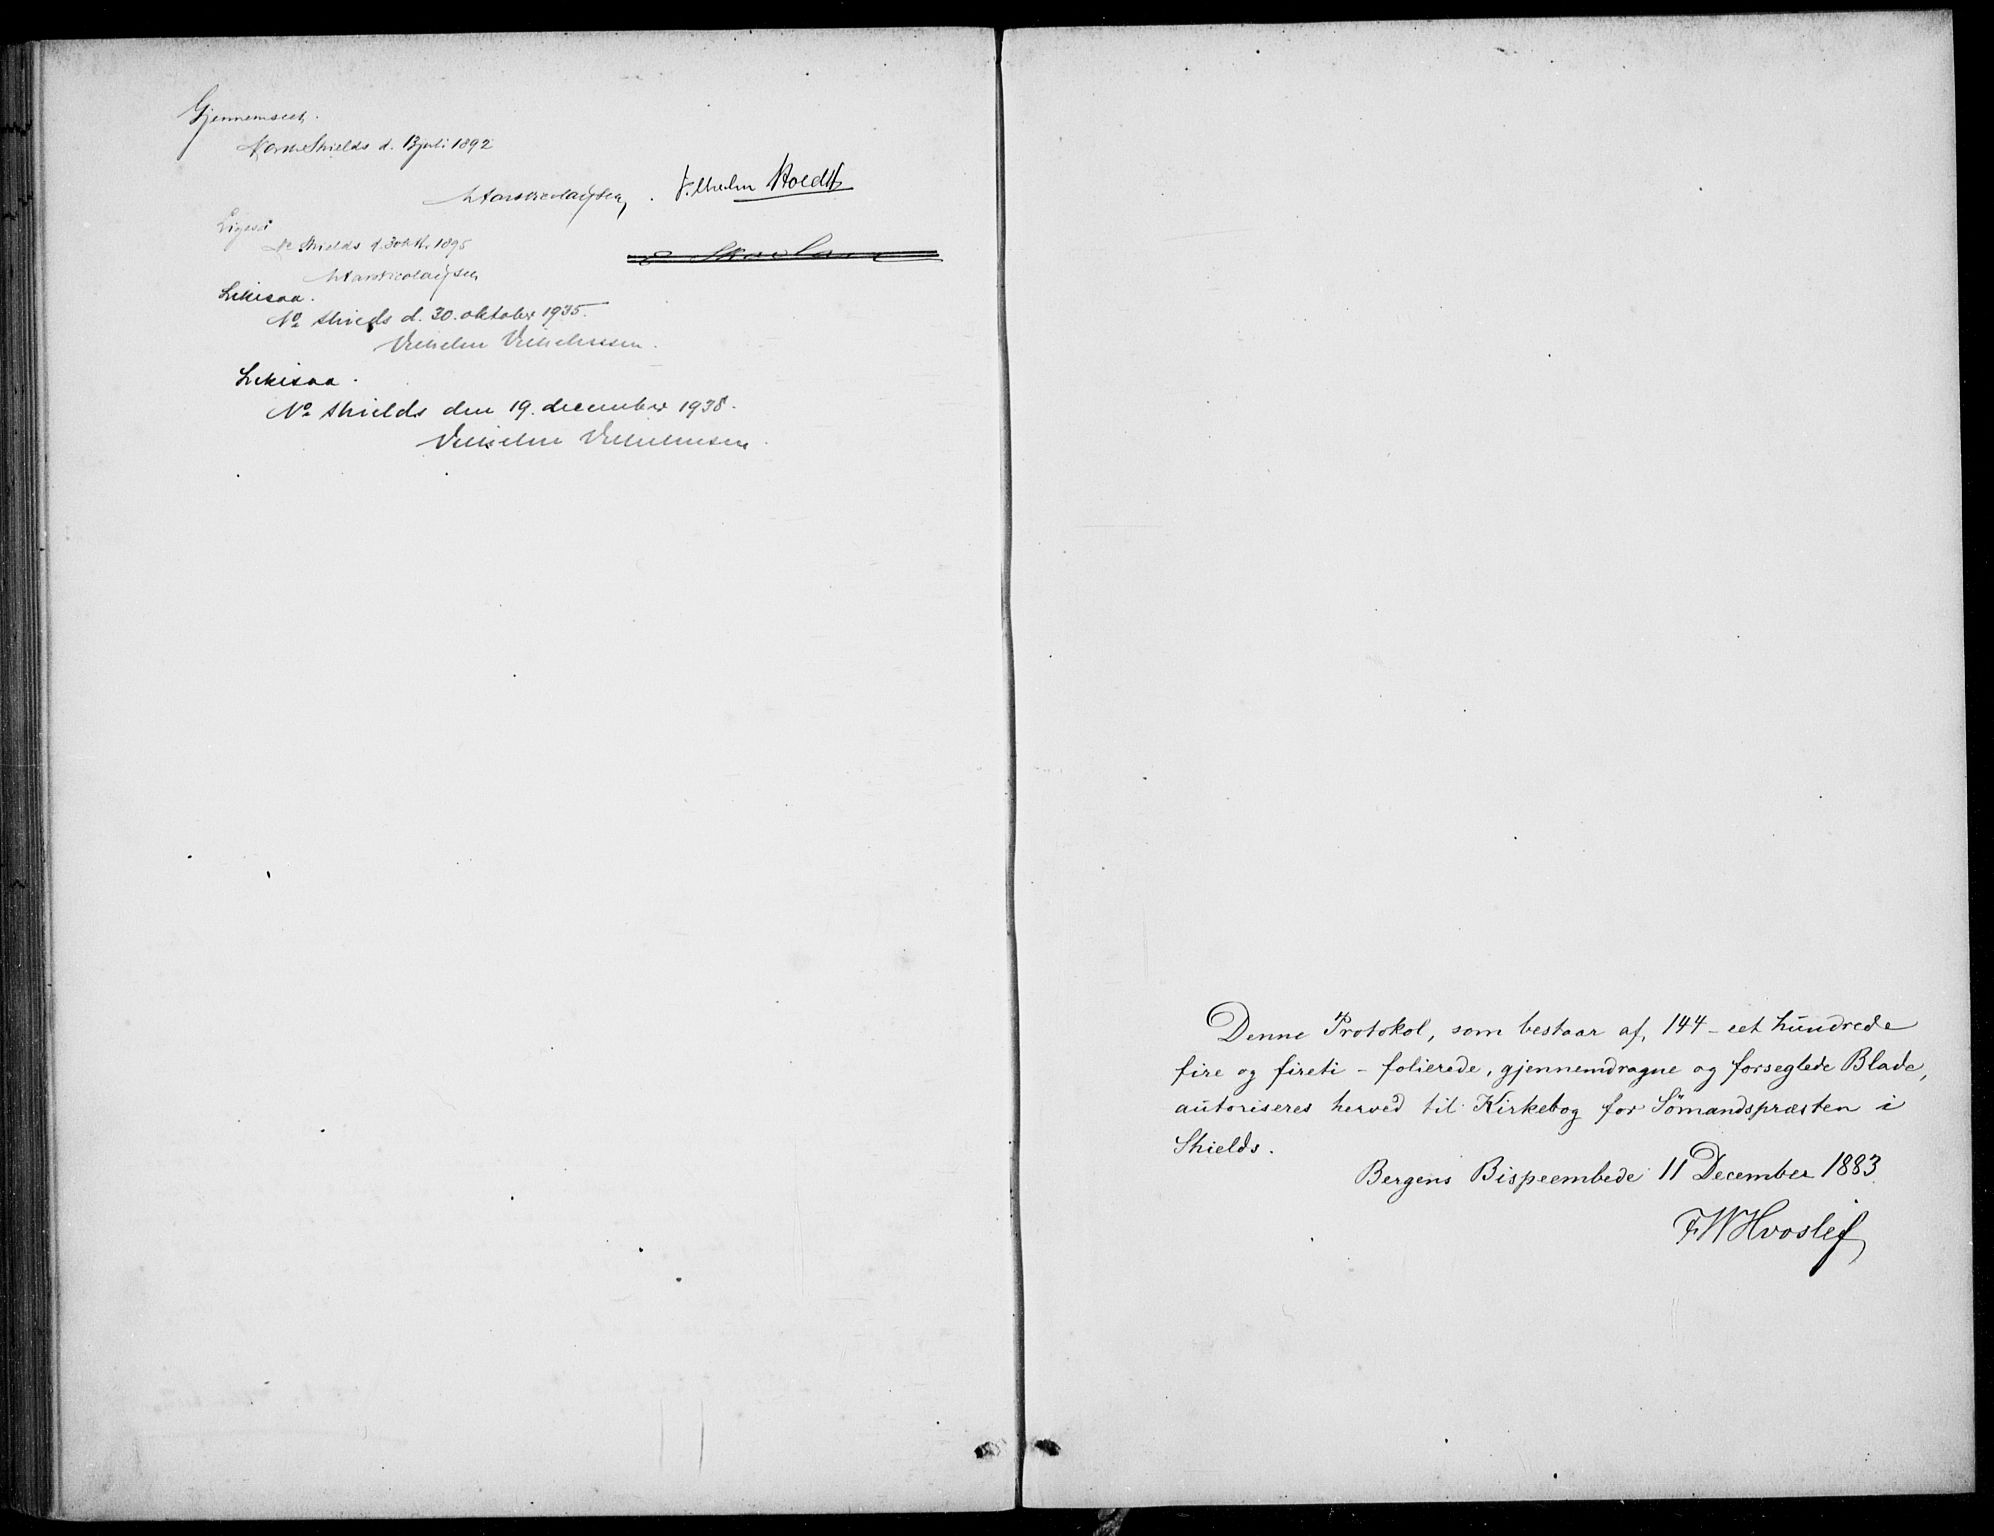 Gjennemseet.
North Shields d. 13 juli 1892
Vilhelm Holdt
Ligeså
No Shields d. 30 okt. 1895
Likesaa.
No. Shields d. 30. oktober 1935.
Vilhelm Vilhelmsen.
Likesaa.
No. Shields den 19. december 1938.
Vilhelm Vilhelmsen.
Denne Protokol, som bestaar af, 144 - eet hundrede
fire og fireti - folierede, gjennemdragne og forseglede Blade,
autoriseres herved til Kirkebog for Sömandspræsten i
Shields.
Bergens Bispeembede 11 December 1883.
FWHvoslef